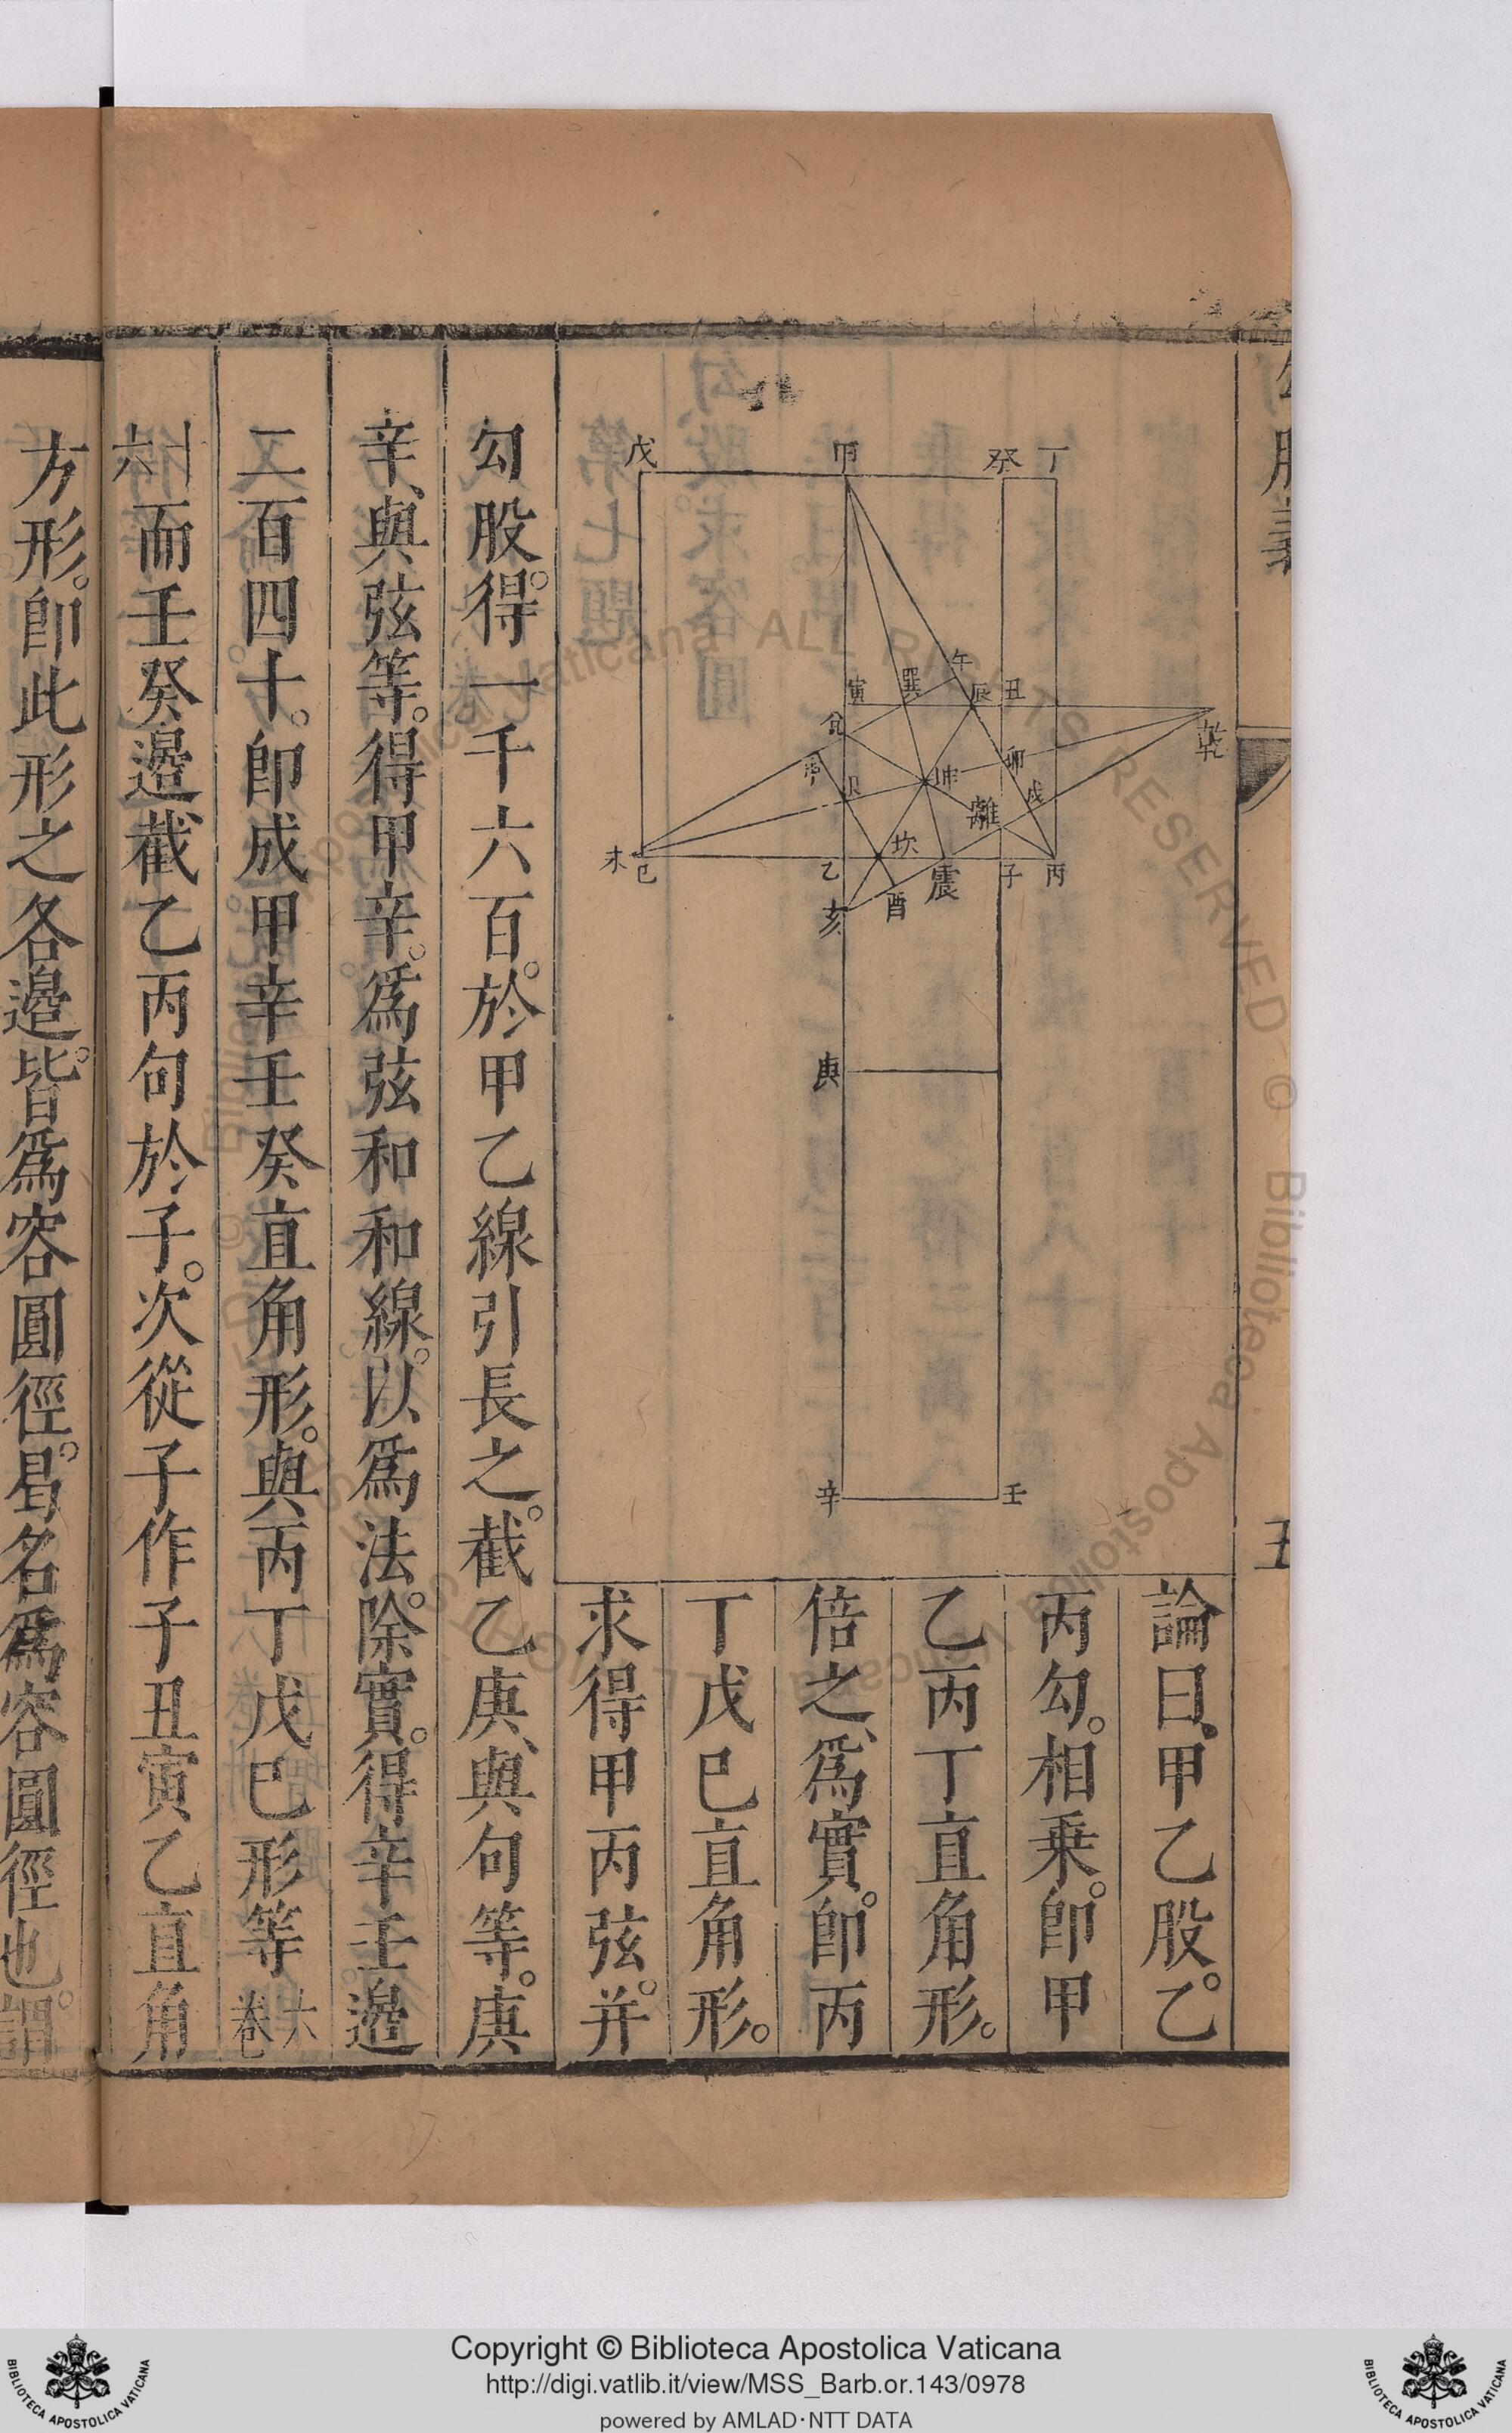 論曰甲乙股。乙
丙勾。相乘。卽甲
乙丙丁直角形。
倍之、爲實。卽丙
丁戊巳直角形。
求得甲丙弦。并
勾股。得一千六百。於甲乙線引長之。截乙庚、與句等。庚
辛、與弦等。得甲辛。爲弦和和線。以爲法。除實。得辛壬邉
二百四十。卽成甲辛壬癸直角形。與丙丁戊巳形等 六卷
十六 而壬癸邉截乙丙句於子。次從子作子丑寅乙直角
方形。卽此形之各邉。皆爲容圓徑。曷名爲容圓徑也。謂
五
戊 甲 癸 丁
午
寅 巽 辰 丑
兊 乾
艮 坤 卯
離 戌
坎
木 巳 乙 子 丙
震
酉
亥
庚
辛 壬
Copyright © Biblioteca Apostolica Vaticana
http://digi.vatlib.it/view/MSS_Barb.or.143/0978
powered by AMLAD·NTT DATA
BIBLIOTECA APOSTOLICA VATICANA
BIBLIOTECA APOSTOLICA VATICANA